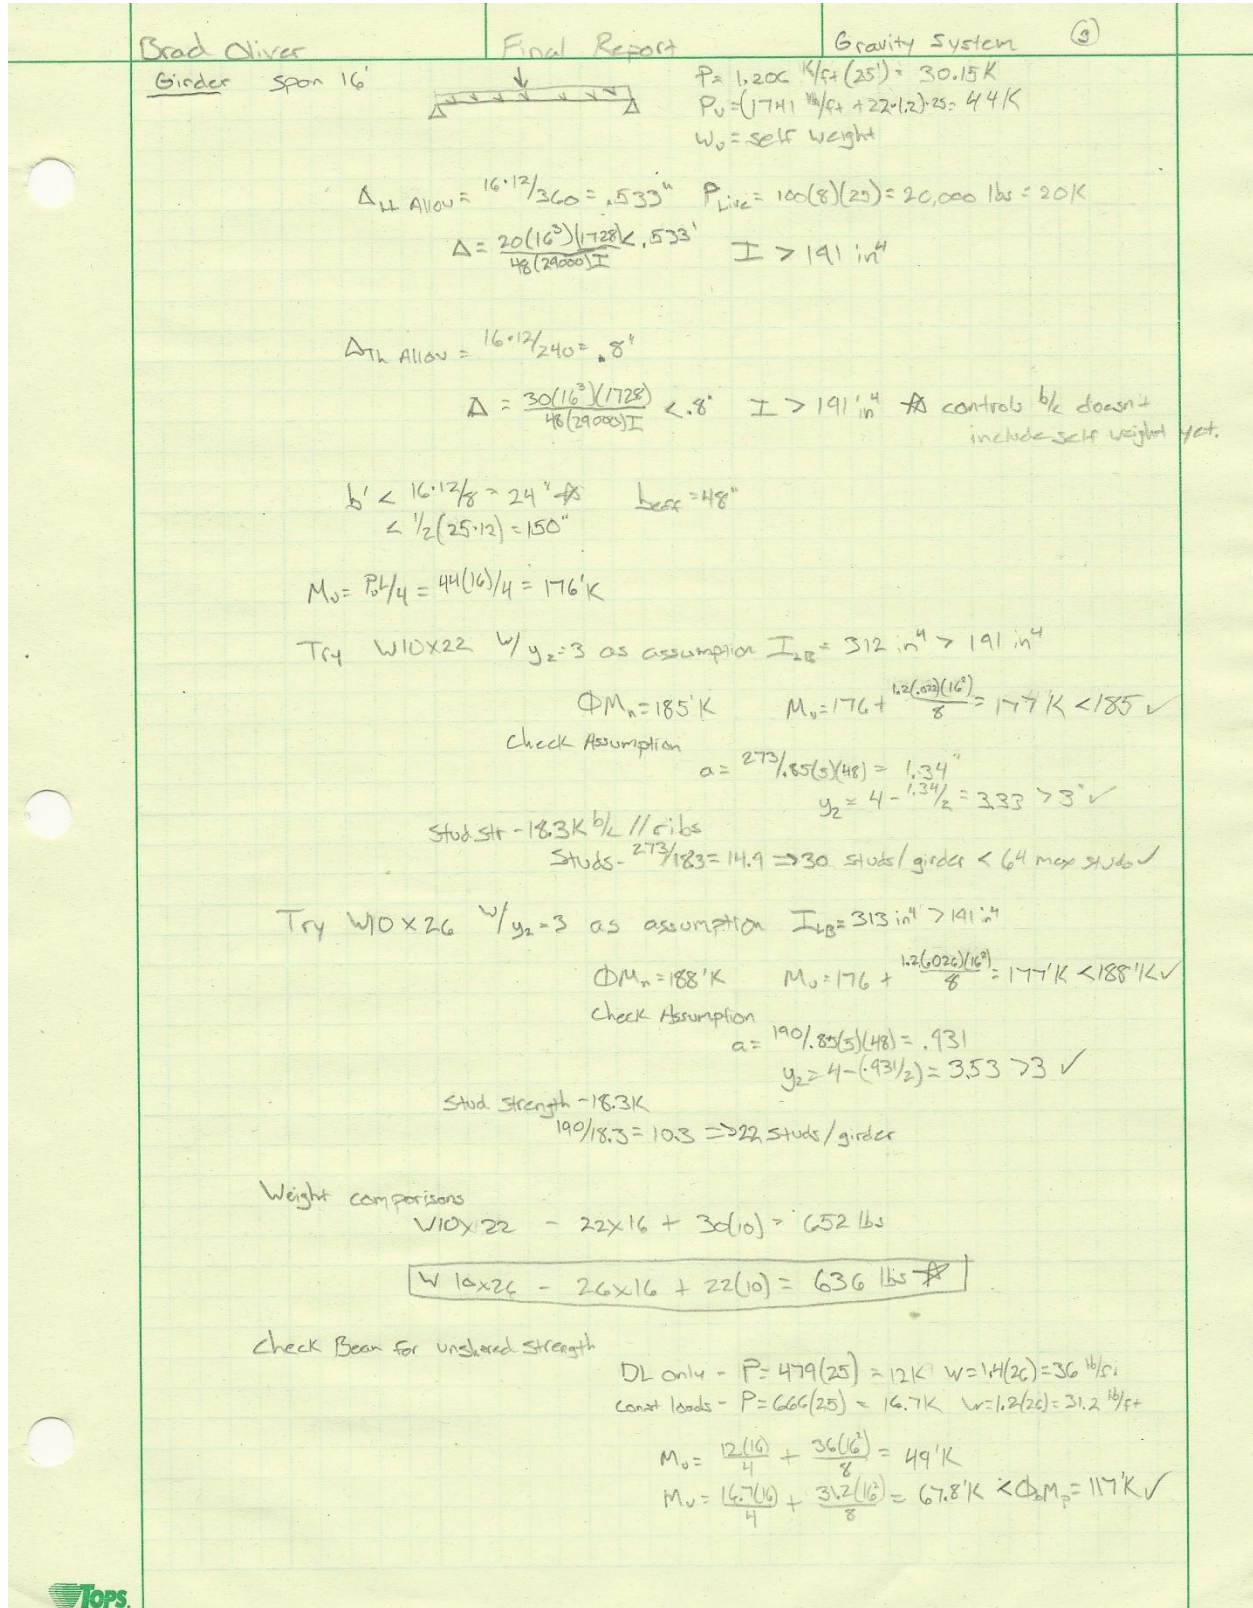 Brad Oliver Final Report Gravity System 3
Girder Span 16'
P= 1.206 K/ft (25') = 30.15K
Pu=(1741 lb/ft +22·1.2)·25= 44K
Wu= self weight
ΔLL Allow= 16·12/360= .533" PLive= 100(8)(25)= 20,000 lbs = 20K
Δ= 20(16³)(1728)/48(29000)I < .533' I > 191 in⁴
ΔTL Allow = 16·12/240= .8"
Δ = 30(16³)(1728)/48(29000)I <.8" I > 191 in⁴ ☆ controls b/c doesn't
include self weight yet.
b' < 16·12/8 = 24" ☆ beff =48"
< 1/2(25·12) = 150"
Mu= PuL/4 = 44(16)/4 = 176'K
Try W10x22 w/ y2=3 as assumption ILB= 312 in⁴ > 191 in⁴
ΦMn=185'K Mu=176+ 1.2(.022)(16²)/8 = 177'K <185 ✓
Check Assumption
a= 273/.85(5)(48) = 1.34"
y2 = 4 - 1.34/2 = 3.33 >3" ✓
Stud str - 18.3K b/c // ribs
Studs- 273/18.3= 14.9 =>30 studs/girder < 64 max studs ✓
Try W10x26 w/ y2=3 as assumption ILB= 313 in⁴ >191 in⁴
ΦMn=188'K Mu=176 + 1.2(.026)(16²)/8 = 177'K <188'K ✓
Check Assumption
a= 190/.85(5)(48) = .931
y2= 4-(.931/2) = 3.53 >3 ✓
Stud Strength -18.3K
190/18.3= 10.3 =>22 studs/girder
Weight comparisons
W10x22 - 22x16 + 30(10) = 652 lbs
W10x26 - 26x16 + 22(10) = 636 lbs ☆
Check Beam for unshored strength
DL only - P= 479(25) = 12K W=1.4(26)=36 lb/ft
const loads - P=666(25) = 16.7K W=1.2(26)=31.2 lb/ft
Mu= 12(16)/4 + 36(16²)/8 = 49'K
Mu= 16.7(16)/4 + 31.2(16²)/8 = 67.8'K <ΦbMp= 117'K ✓
TOPS.